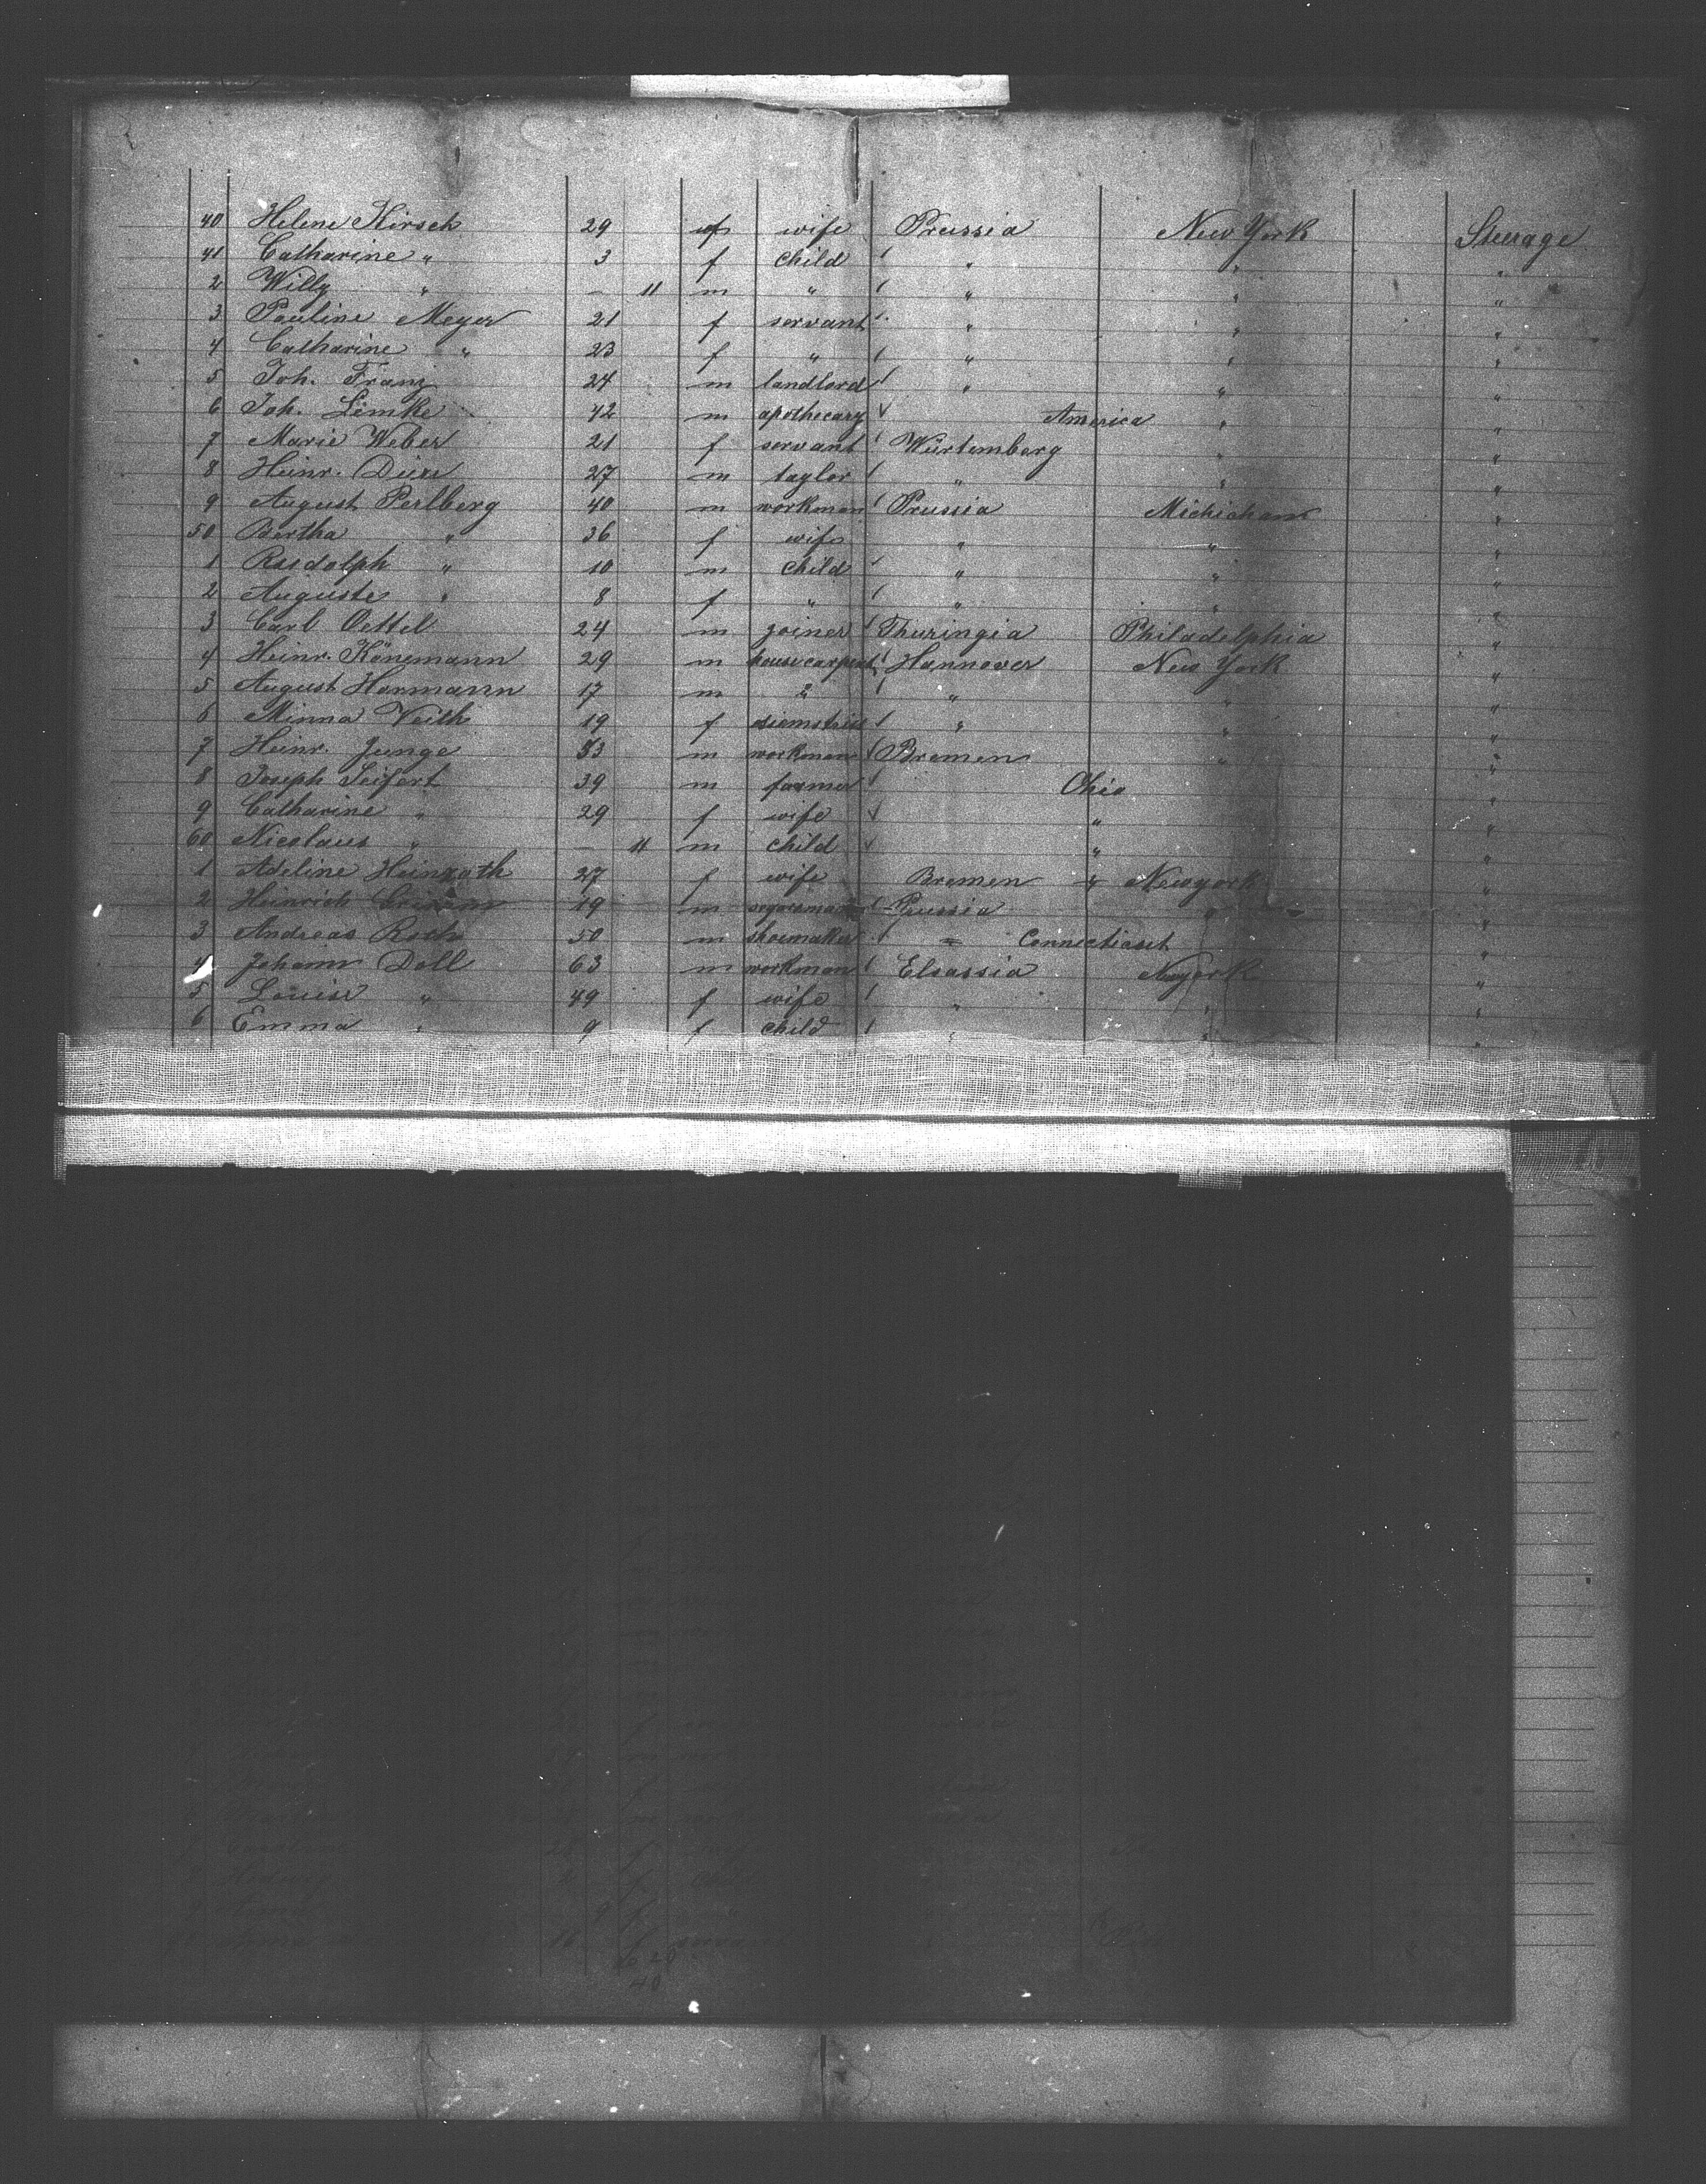 40 Helene Kirsch 29 f wife Prussia New York Steerage
41 Catharine " 3 f child " " "
2 Willy " — 11 m " " " "
3 Pauline Meyer 21 f servant " " "
4 Catharine " 23 f " " " "
5 Joh. Franz 24 m landlord " " "
6 Joh. Lemke 42 m apothecary America " "
7 Marie Weber 21 f servant Würtemberg " "
8 Heinr. 27 m taylor " " "
9 August Perlberg 40 m workman Prussia Michichan "
50 Bertha " 36 f wife " " "
1 Rudolph " 10 m child " " "
2 Auguste " 8 f " " " "
3 Carl Oettel 24 m joiner Thuringia Philadelphia "
4 Heinr. Könemann 29 m housecarpent. Hannover New York "
5 August Hormann 17 m " " " "
6 Minna Veith 19 f " " "
7 Heinr. Junge 53 m workman Bremen " "
8 Joseph Seifert 39 m farmer Ohio "
9 Catharine " 29 f wife " "
60 Nicolaus " — 11 m child " "
1 Adeline Heinrath 27 f wife Bremen " Newyork "
2 Heinrich 19 m Prussia " "
3 Andreas Roth 50 m shoemaker " Connecticut "
4 Johann Doll 63 m workman Elsassia Newyork "
5 Louise " 49 f wife " " "
6 Emma " 9 f child " " "